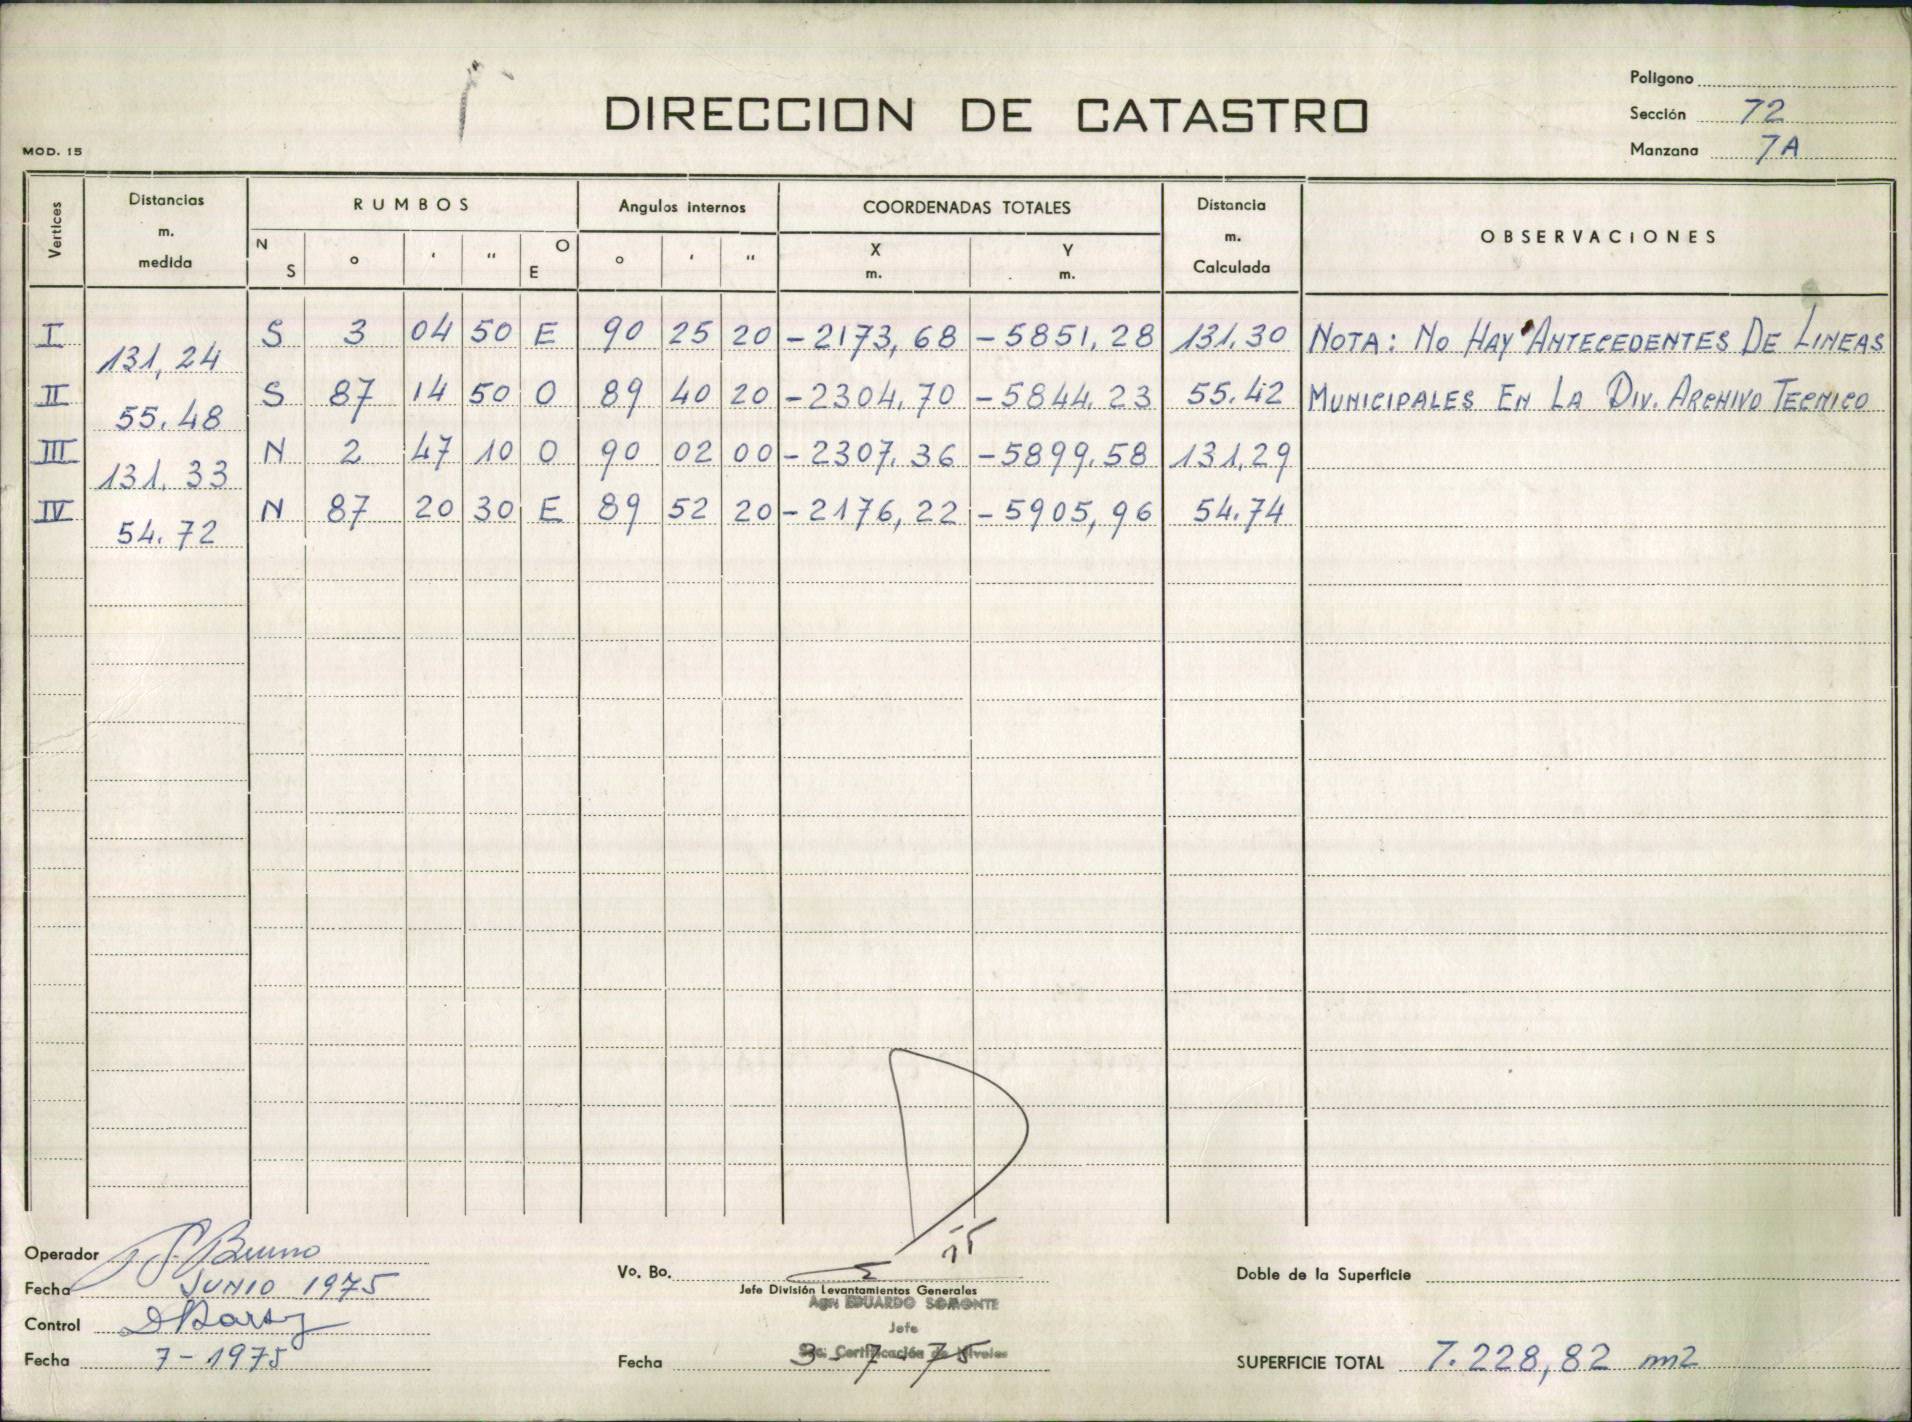 Poligono
DIRECCION DE CATASTRO
Sección 72
MOD. 15
Manzana 7A
Vertices
Distancias m. medida
RUMBOS
Angulos internos
COORDENADAS TOTALES
Distancia m. Calculada
OBSERVACIONES
N S ° ' " O E ° ' " X m. Y m.
I S 3 04 50 E 90 25 20 -2173,68 -5851,28 131,30 NOTA: NO HAY ANTECEDENTES DE LINEAS
131,24
II S 87 14 50 O 89 40 20 -2304,70 -5844,23 55.42 MUNICIPALES EN LA DIV. ARCHIVO TECNICO
55.48
III N 2 47 10 O 90 02 00 -2307,36 -5899,58 131,29
131,33
IV N 87 20 30 E 89 52 20 -2176,22 -5905,96 54.74
54.72
Operador Bruno
Fecha JUNIO 1975
Control
Fecha 7-1975
Vo. Bo.
Jefe División Levantamientos Generales
Agr. EDUARDO SOMONTE
Jefe
Sec. Certificación de Niveles
Fecha 3-7-75
Doble de la Superficie
SUPERFICIE TOTAL 7.228,82 m2